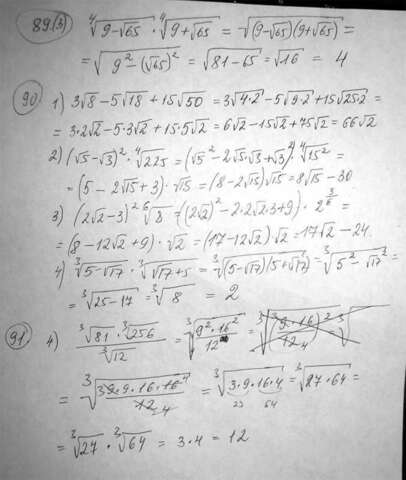 89.(3) ⁴√(9-√65) · ⁴√(9+√65) = √((9-√65)(9+√65)) =
= √(9²-(√65)²) = √(81-65) = √16 = 4
90. 1) 3√8 - 5√18 + 15√50 = 3√(4·2) - 5√(9·2) + 15√(25·2) =
= 3·2√2 - 5·3√2 + 15·5√2 = 6√2 - 15√2 + 75√2 = 66√2
2) (√5-√3)² · ⁴√225 = (√5² - 2√5·√3 + √3²) · ⁴√15² =
= (5 - 2√15 + 3) · √15 = (8 - 2√15)√15 = 8√15 - 30
3) (2√2-3)² ⁶√8 = ((2√2)² - 2·2√2·3 + 9) · 2^(3/6) =
= (8 - 12√2 + 9) · √2 = (17 - 12√2)√2 = 17√2 - 24.
4) ³√(5-√17) · ³√(√17+5) = ³√((5-√17)(5+√17)) = ³√(5²-√17²) =
= ³√(25-17) = ³√8 = 2
91. 4) (³√81 · ³√256)/³√12 = ³√((9²·16²)/12) =
= ³√((9·9·16·16)/12) = ³√(3·9·16·4) = ³√(27·64) =
= ³√27 · ³√64 = 3·4 = 12